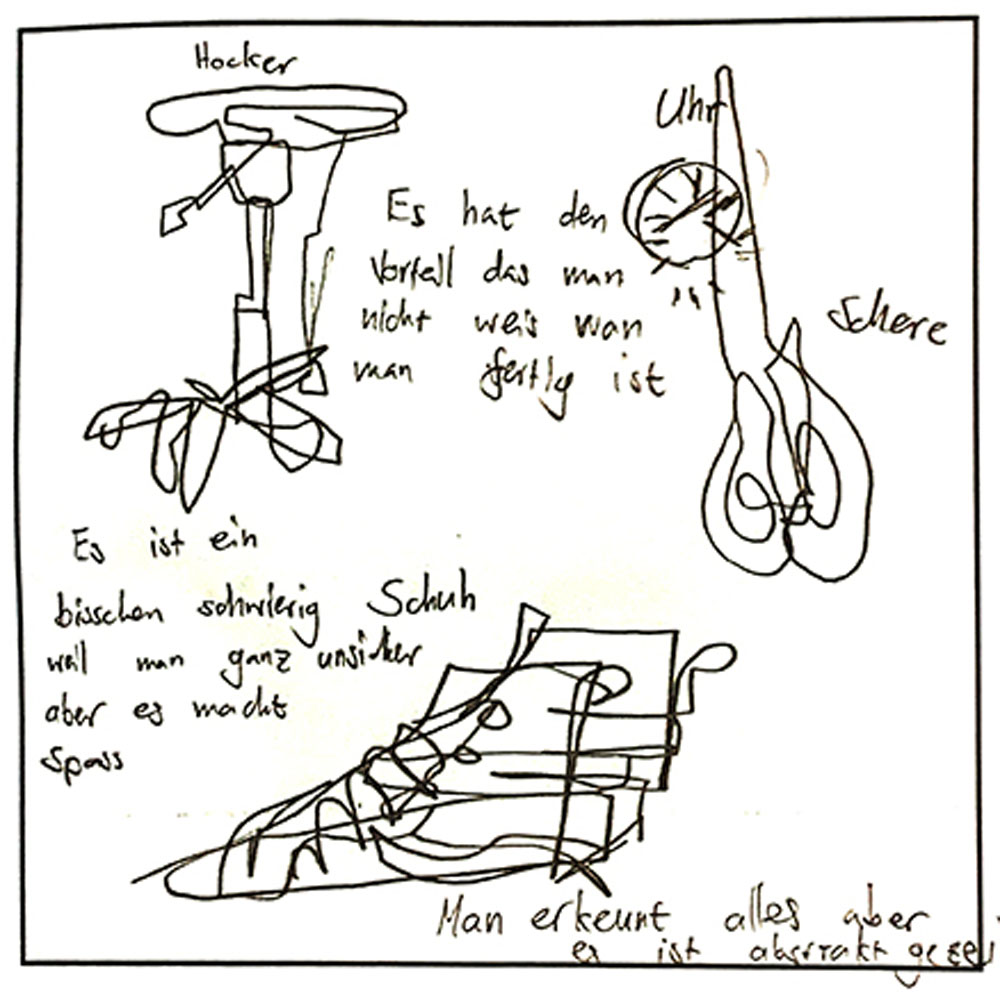 Hocker
Uhr
Es hat den
Vorfall das man
nicht weis wan
man fertig ist
Schere
Es ist ein
bisschen schwierig
weil man ganz unsicker
aber es macht
Spass
Schuh
Man erkennt alles aber
es ist abstrakt